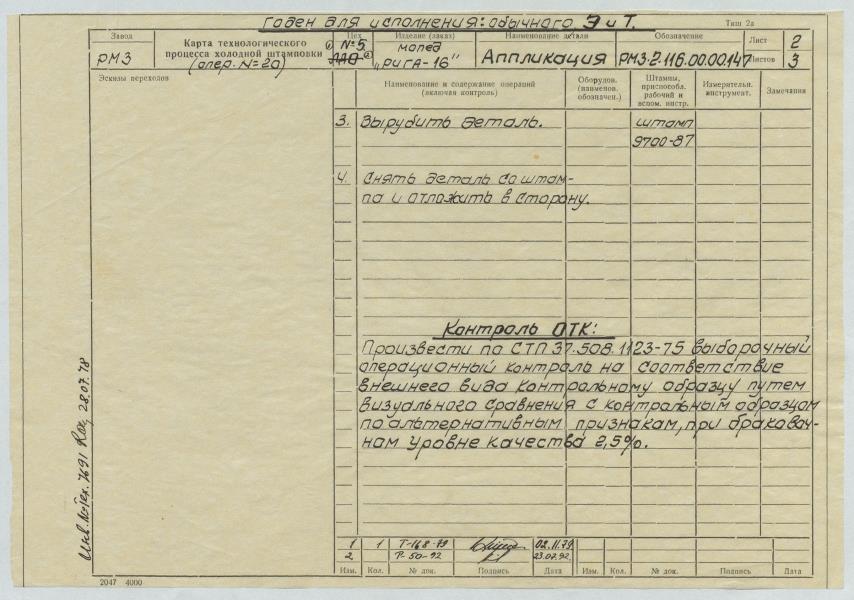 Годен для исполнения: обычного Э и Т.
Тиш 2а
Завод
РМЗ
Карта технологического
процесса холодной штамповки
(опер. №2а)
Цех
① №5
110 ②
Изделие (заказ)
мопед
„Рига-16"
Наименование детали
Аппликация
Обозначение
РМЗ-2.116.00.00.147
Лист 2
Листов 3
Эскизы переходов
Наименование и содержание операций
(включая контроль)
Оборудов.
(наименов.
обозначен.)
Штампы,
приспособл.
рабочий и
вспом. инстр.
Измерительн.
инструмент.
Замечания
3. Вырубить деталь. штамп
9700-87
4. Снять деталь со штам-
па и отложить в сторону.
Контроль ОТК:
Произвести по СТП 37.508.1123-75 выборочный
операционный контроль на соответствие
внешнего вида контрольному образцу путем
визуального сравнения с контрольным образцом
по альтернативным признакам, при браковоч-
ном уровне качества 2,5%.
28.07.78
1 1 Т-168-79 02.11.79
2 Р-50-92 23.07.92
Изм. Кол. № док. Подпись Дата Изм. Кол. № док. Подпись Дата
2047 4000